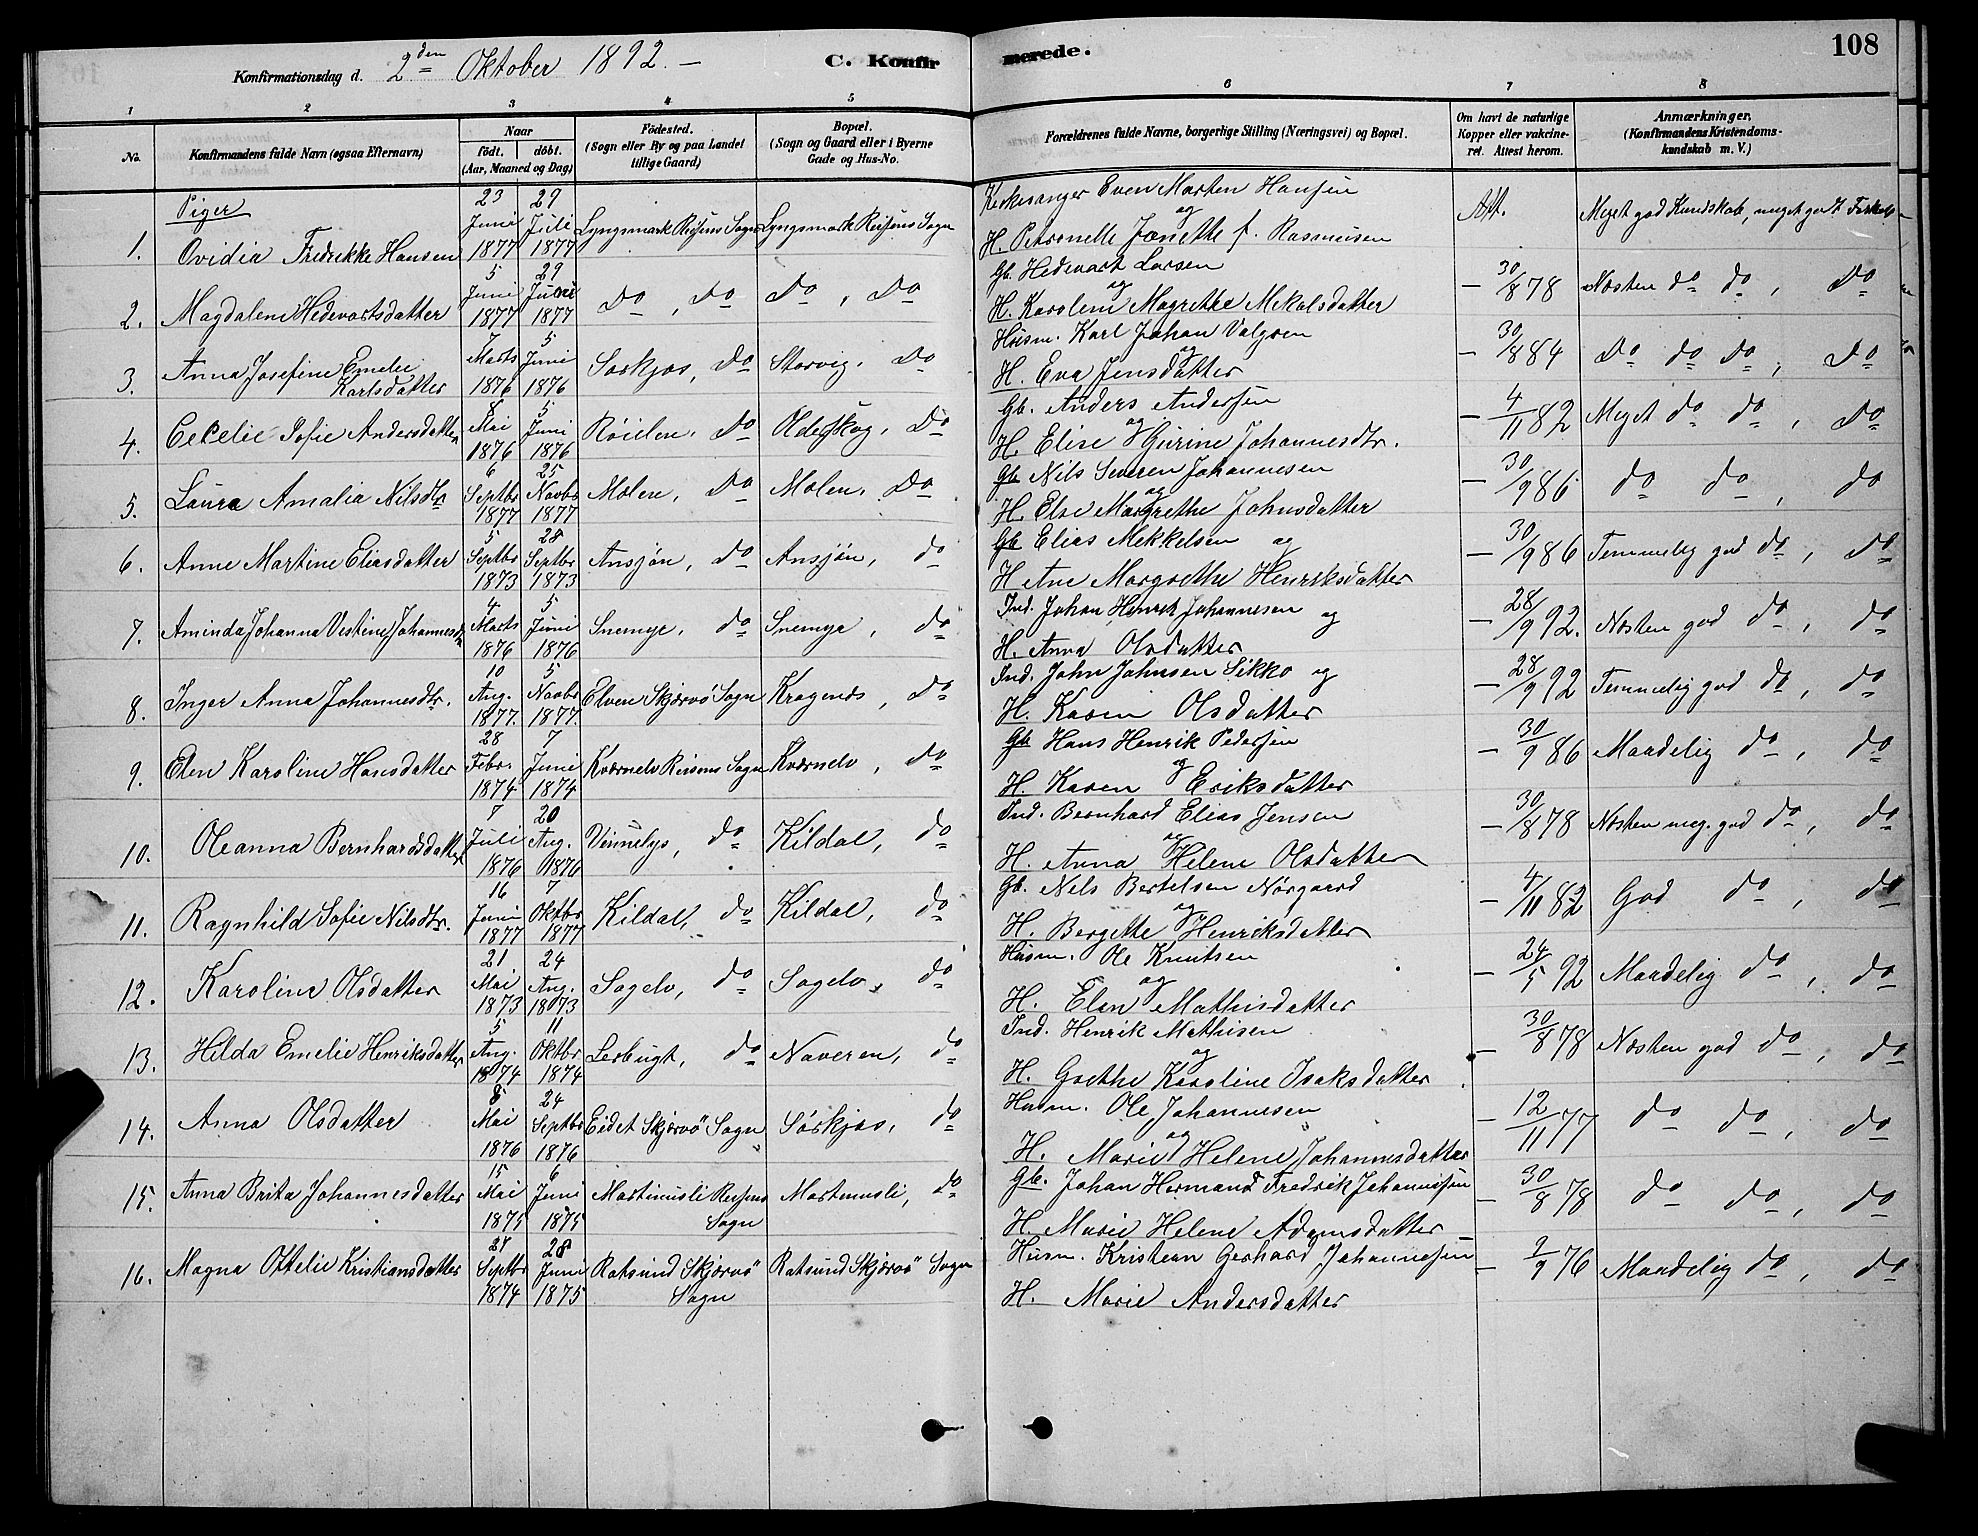 108
Konfirmationsdag d. 2den Oktober 1892. — C. Konfirmerede.
1 2 3 4 5 6 7 8
No. Konfirmandens fulde Navn (ogsaa Efternavn) Naar født. døbt. (Aar, Maaned og Dag) Fødested. (Sogn eller By og paa Landet tillige Gaard) Bopæl. (Sogn og Gaard eller i Byerne Gade og Hus-No. Forældrenes fulde Navne, borgerlige Stilling (Næringsvei) og Bopæl. Om havt de naturlige Kopper eller vakcineret. Attest herom. Anmærkninger. (Konfirmandens Kristendomskundskab m. V.)
Piger
1. Ovidia Fredrikke Hansen 23 Juni 1877 29 Juli 1877 Lyngsmark Reisens Sogn Lyngsmark Reisens Sogn Kirkesanger Even Morten Hansen og H. Petronelle Janette f. Rasmusen Att. Meget god Kundskab, meget godt
2. Magdalene Hedevartsdatter 5 Juni 1877 29 1877 Do, Do Do, Do Gb. Hedevart Larsen og H. Karolene Magrethe Mekalsdatter — 30/8 78 Næsten do do, Do
3. Anna Josefine Emelie Karlsdatter 7 Marts 1876 5 Juni 1876 Sørkjos, Do Storvig, Do Husm. Karl Johan Valgren og H. Eva Jensdatter — 30/8 84 Do do Do, Do
4. Cecelie Sofie Andersdatter Mai 1876 5 Juni 1876 Røielen, Do Olderskog, Do Gb. Anders Andersen og H. Elise Gurine Johannesdtr. — 4/11 82 Meget do do, Do
5. Laura Amalia Nilsdtr 6 Septbr 1877 25 Novbr 1877 Molen, Do Molen, Do Gb Nils Severen Johannesen og H. Else Margrethe Johnsdatter — 30/9 86 do do, do
6. Anne Martine Eliasdatter 5 Septbr 1873 28 Septbr 1873 Ansjøn, do Ansjøn, do Gb Elias Mekkelsen og H Ane Margrethe Henriksdatter — 30/9 86 Temmelig god do, do
7. Aminda Johanna Vestine Johannesdtr 4 Marts 1876 5 Juni 1876 Snemyr, do Snemyr, do Ind. Johan Henrik Johannesen og H. Anna Olsdatter — 28/9 92. Næsten god do, do
8. Inger Anna Johannesdtr. 10 Aug. 1877. 5 Novbr 1877. Elven Skjærvø Sogn Kragenes, do Ind. John Johnsen Sikko og H. Karen Olsdatter — 28/9 92 Temmelig god do, do
9. Elen Karoline Hansdatter 28 Febr. 1874 7 Juni 1874 Kværnelv Reisens Sogn Kværnelv, do Gb Hans Henrik Pedersen og H. Karen Eriksdatter — 30/9 86 Maadelig do, do
10. Oleanna Bernhardsdatter 7 Juli 1876 20 Aug. 1876 Vinnelys, do Kildal, do Ind. Bernhard Elias Jensen og H. Anna Helene Olsdatter — 30/8 78 Næsten meg. god do, do
11. Ragnhild Sofie Nilsdtr. 16 Juni 1877 7 Oktbr 1877 Kildal, do Kildal, do Gb. Nels Bertelsen Nørgaard og H. Bergette Henriksdatter — 4/11 82 God do, do
12. Karoline Olsdatter 21 Mai 1873 24 Aug. 1873 Sagelv, do Sagelv, do Husm. Ole Knutsen og H. Elen Mathisdatter — 24/5 92 Maadelig do, do
13. Hilda Emelie Henriksdatter 5 Aug. 1874 11 Oktbr 1874 Lerbugt, do Naveren, do Ind. Henrik Mathisen og H. Grethe Karoline Isaksdatter — 30/8 78 Næsten god do, do
14. Anna Olsdatter 8 Mai 1876 24 Septbr 1876 Eidet Skjærvø Sogn Sørkjos, do Husm. Ole Johannesen og H. Marie Helene Johannesdatter — 12/11 77 do do, do
15. Anna Brita Johannesdatter 15 Mai 1875 6 Juni 1875 Martinusli Reisens Sogn Martinusli, do Gb. Johan Hermand Fredrik Johannesen H. Marie Helene Adamsdatter — 30/8 78 do do, do
16. Magna Ottelie Kristiansdatter Septbr 1874 28 Juni 1875 Rotsund Skjærvø Sogn Rotsund Skjærvø Sogn Husm. Kristian Gerhard Johannesen H. Marie Andersdatter — 9/9 76 Maadelig do, do